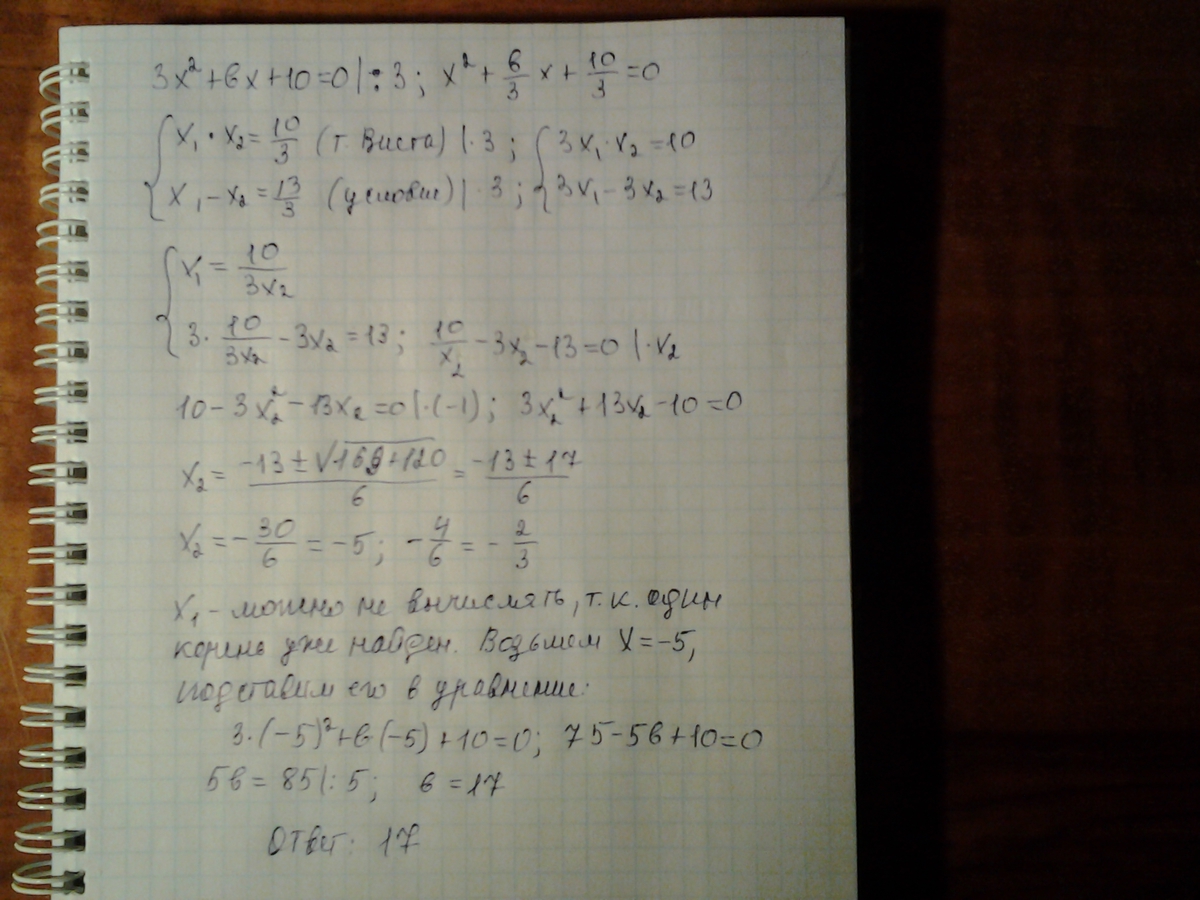 3x² + вx + 10 = 0 | : 3 ; x² + в/3 x + 10/3 = 0
{ x₁ · x₂ = 10/3 (т. Виета) | · 3 ; { 3x₁ · x₂ = 10
x₁ - x₂ = 13/3 (условие) | · 3 ; 3x₁ - 3x₂ = 13
{ x₁ = 10/3x₂
3 · 10/3x₂ - 3x₂ = 13 ; 10/x₂ - 3x₂ - 13 = 0 | · x₂
10 - 3x₂² - 13x₂ = 0 | · (-1) ; 3x₂² + 13x₂ - 10 = 0
x₂ = (-13 ± √(169 + 120))/6 = (-13 ± 17)/6
x₂ = -30/6 = -5 ; -4/6 = -2/3
x₁ - можно не вычислять, т. к. один
корень уже найден. Возьмем x = -5,
подставим его в уравнение:
3 · (-5)² + в(-5) + 10 = 0 ; 75 - 5в + 10 = 0
5в = 85 | : 5 ; в = 17
Ответ: 17